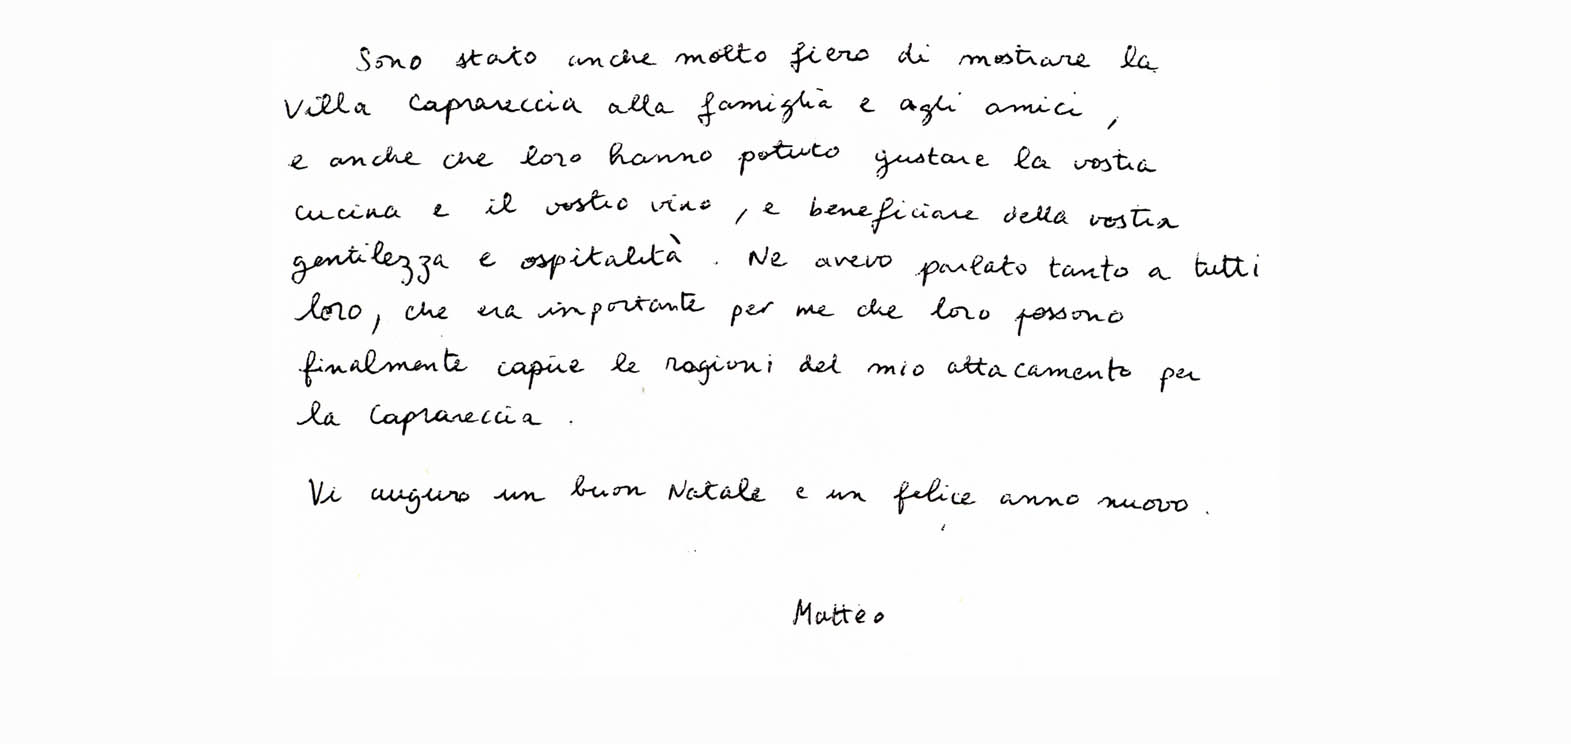 Sono stato anche molto fiero di mostrare la
Villa Caprareccia alla famiglia e agli amici,
e anche che loro hanno potuto gustare la vostra
cucina e il vostro vino, e beneficiare della vostra
gentilezza e ospitalità. Ne avevo parlato tanto a tutti
loro, che era importante per me che loro possono
finalmente capire le ragioni del mio attacamento per
la Caprareccia.
Vi auguro un buon Natale e un felice anno nuovo.
Matteo